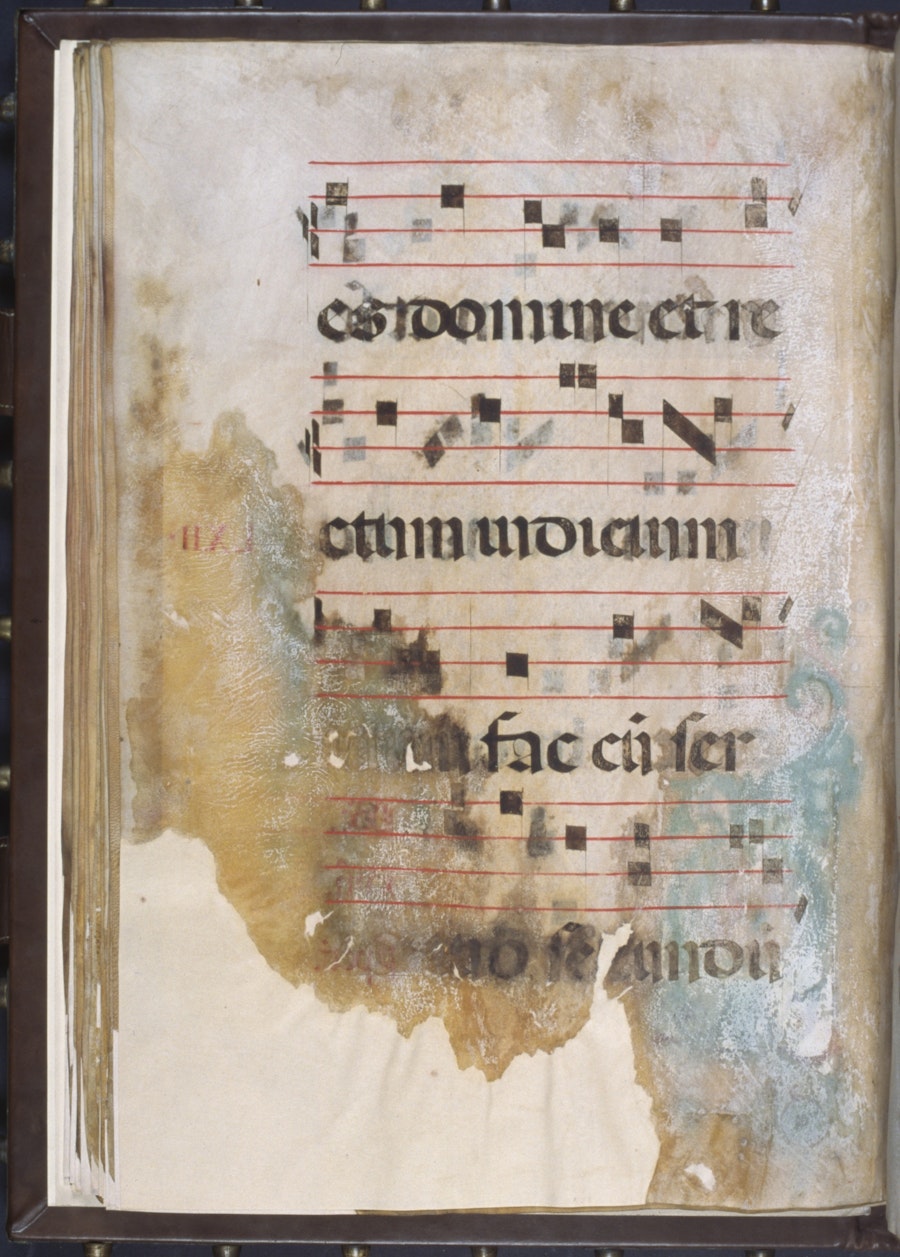 es domine et re
ctum iudicium
fac cū ser
secundū